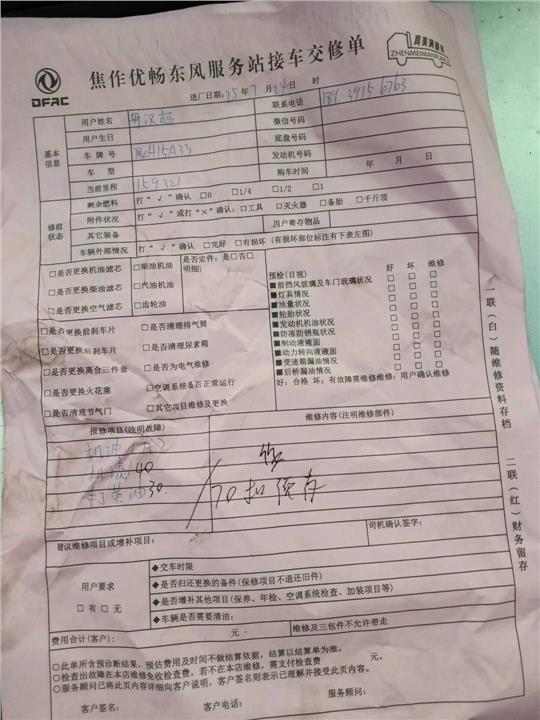 DFAC
焦作优畅东风服务站接车交修单
真美满服务
ZHENMEIMANFUWU
进厂日期:25年7月24日 时
基本信息
用户姓名 联系电话 189 3915 6763
用户生日 微信号码
车牌号 底盘号码
车型 发动机号码
当前里程 159321 购车时间 年 月 日
修前状态
剩余燃料 打“√”确认 □0 □1/4 □1/2 □1
附件状况 打“√”或打“×”确认: □工具 □灭火器 □备胎 □千斤顶
其它装备 用户寄存物品
车辆外部情况 打“√”确认 □完好 □有损坏(有损坏部位标注有下表左图)
□是否更换机油滤芯 □柴油机油 是否定件: 是□否□
□是否更换柴油滤芯 □汽油机油 明细)
□是否更换空气滤芯 □齿轮油
□是否更换前刹车片 □是否清理排气筒
□是否更换后刹车片 □是否清理尿素箱
□是否更换离合三件套 □是否为电气维修
□是否更换火花塞 □空调系统是否正常运行
□是否清理节气门 □其它项目维修及更换
预检(目视) 好 坏 维修
■前挡风玻璃及车门玻璃状况 □ □ □
■灯具情况 □ □ □
■油量状况 □ □ □
■轮胎状况 □ □ □
■发动机机油状况 □ □ □
■防冻防锈瓶状况 □ □ □
■制动液液面 □ □ □
■动力转向液液面 □ □ □
■变速箱漏油情况 □ □ □
■后桥漏油情况 □ □ □
好:合格 坏:有故障需维修维修:用户确认维修
报修项目(注明故障) 维修内容(注明维修部件)
机油
机滤 40
打黄油 30
70 扣预存
建议维修项目或增补项目: 司机确认签字:
用户要求
□有 □无
◆交车时限
◆是否归还更换的备件(保修项目不退还旧件)
◆是否增补其他项目(保养、年检、空调系统检查、加装项目等)
◆车辆是否需要清油:
费用合计(客户): 元 维修及三包件不允许带走
○此单所含预诊断结果,预估费用及时间不做结算依据,结算以结算单为准。
○检查出故障在本店维修免收检查费,若不在本店维修,需支付检查费 元。
○服务顾问已将此页内容详细向客户说明,客户签名则表示已理解并接受此页内容。
客户签名: 客户电话: 服务顾问:
一联(白)随维修资料存档 二联(红)财务留存